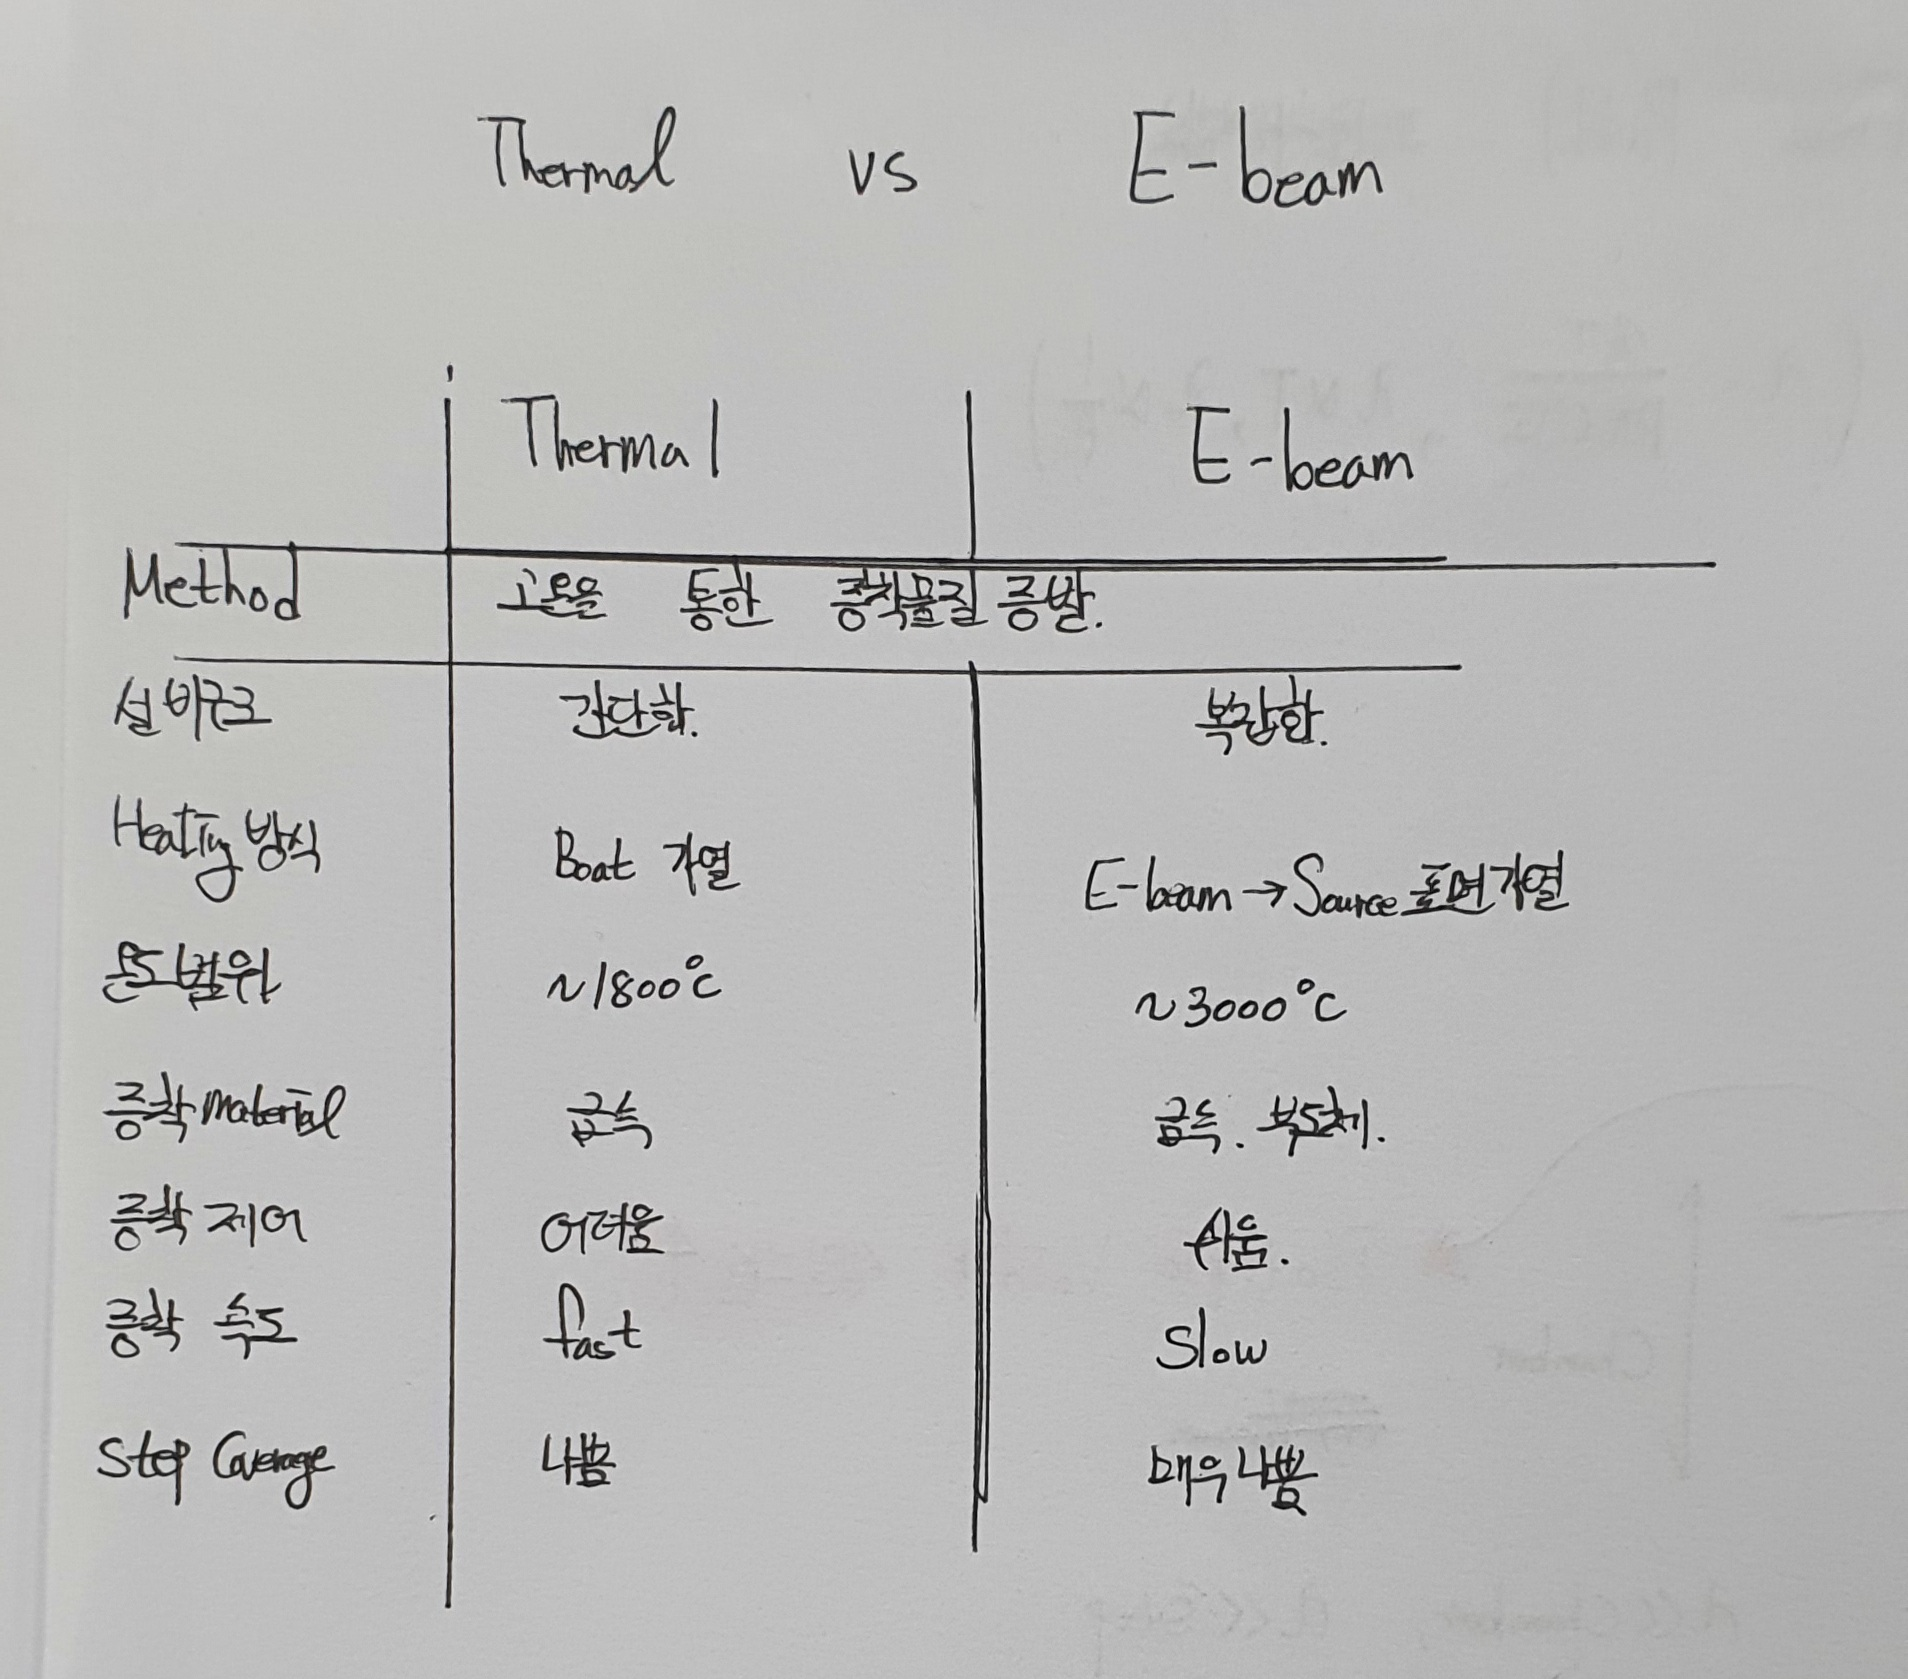 Thermal vs E-beam
Thermal E-beam
Method 고온을 통한 증착물질 증발.
설비구조 간단함. 복잡함.
Heating 방식 Boat 가열 E-beam → Source 표면가열
온도범위 ~1800°C ~3000°C
증착 material 금속 금속. 부도체.
증착 제어 어려움 쉬움.
증착 속도 fast Slow
Step Coverage 나쁨 매우 나쁨